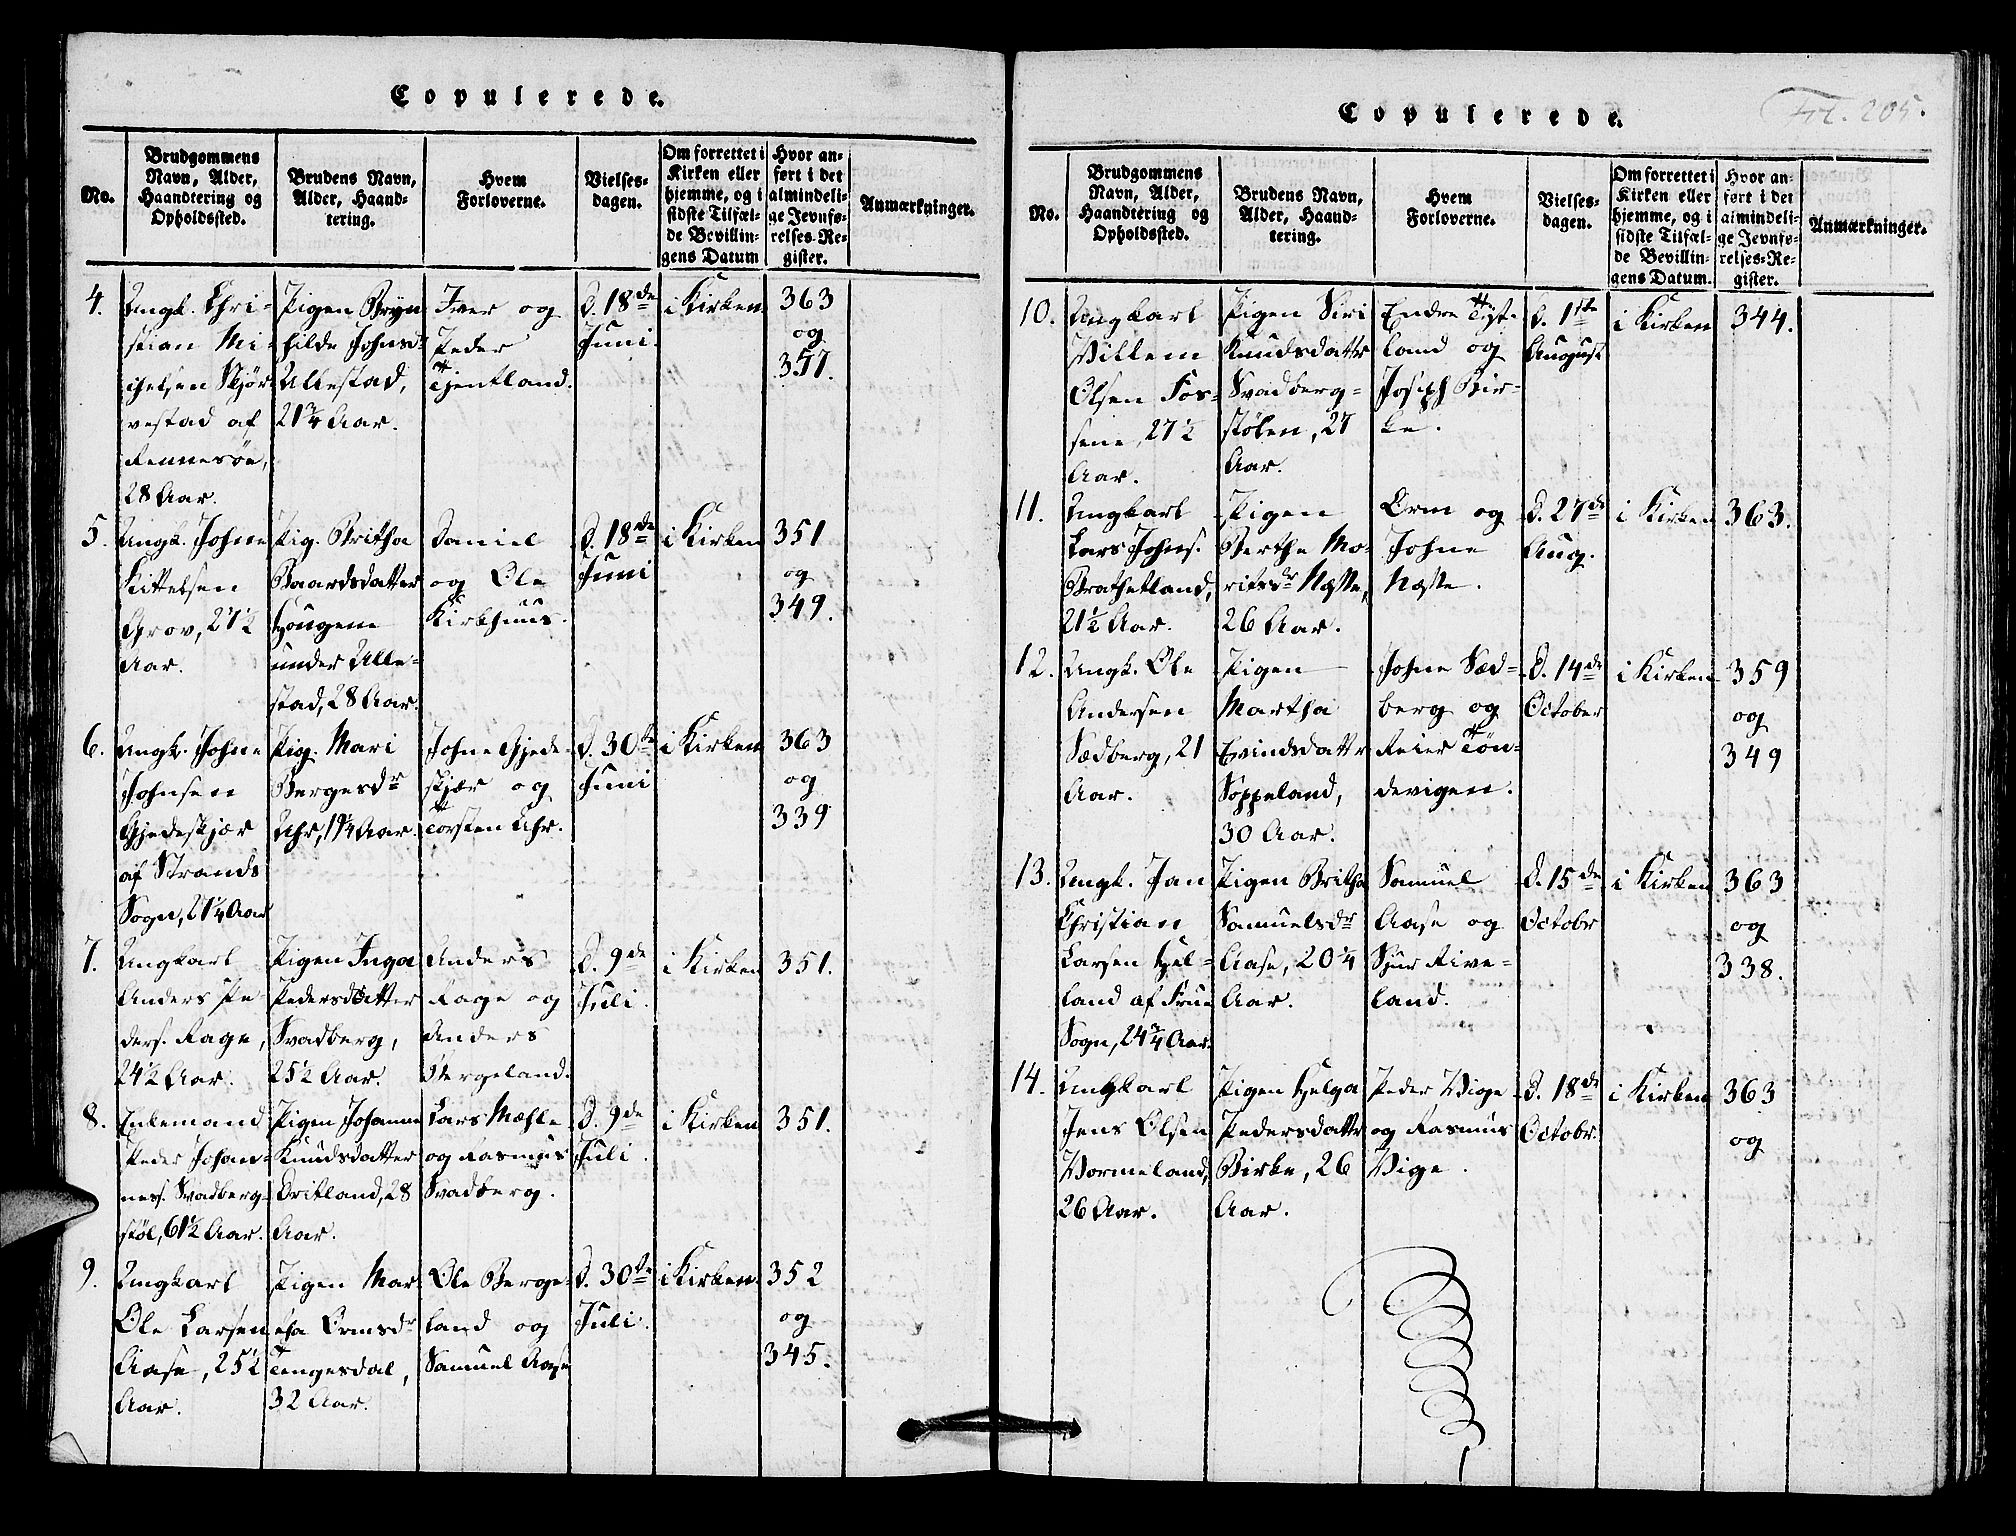 Copulerede.
No.
Brudgommens Navn, Alder, Haandtering og Opholdssted.
Brudens Navn, Alder, Haandtering.
Hvem Forloverne.
Vielses-dagen.
Om forrettet i Kirken eller hjemme, og i sidste Tilfælde Bevillingens Datum
Hvor anført i det almindelige Jevnførelses-Register.
Anmærkninger.
4.
Ungk. Chri-
stian Mi-
chelsen Skjør-
vestad af
Rennesøe,
28 Aar.
Pigen Bryn
hilde Johnsd.
Ullestad,
21¾ Aar.
Iver og
Peder
Tjentland.
D. 18de
Juni.
i Kirken
363
og
357.
5.
Ungk. Johne
Kittelsen
Grov, 27½
Aar.
Pig. Britha
Baardsdatter
Hougene
under Ulle-
stad, 28 Aar.
Daniel
og Ole
Kirkhuus.
D. 18de
Juni
i Kirken
351
og
349.
6.
Ungk. Johne
Johnsen
Gjedeskjær
af Strands
Sogn, 21¼ Aar
Pig. Mari
Bergesdr
Uhr, 19¼ Aar.
Johne Gjede-
skjær og
Torsten Uhr.
D. 30te
Juni
i Kirken
363
og
339
7.
Ungkarl
Anders Pe-
ders. Rage,
24½ Aar.
Pigen Inga
Pedersdatter
Svadberg,
25½ Aar.
Anders
Rage og
Anders
Bergeland.
D. 9de
Juli.
i Kirken
351.
8.
Enkemand
Peder Johan-
nes. Svadberg-
støl, 61½ Aar.
Pigen Johanne
Knudsdatter
Dritland, 28
Aar.
Lars Mæhle
og Rasmus
Svadberg.
D. 9de
Juli.
i Kirken
351.
9.
Ungkarl
Ole Larsen
Aase, 25½
Aar.
Pigen Mar
tha Ormsdr
Tengesdal,
32 Aar.
Ole Berge-
land og
Samuel Aase
D. 30te
Juli.
i Kirken.
352
og
345.
Copulerede.
Frt. 205.
No.
Brudgommens Navn, Alder, Haandtering og Opholdssted.
Brudens Navn, Alder, Haandtering.
Hvem Forloverne.
Vielses-dagen.
Om forrettet i Kirken eller hjemme, og i sidste Tilfælde Bevillingens Datum.
Hvor anført i det almindelige Jevnførelses-Register.
Anmærkninger.
10.
Ungkarl
Villem
Olsen Fos-
sene, 27½
Aar.
Pigen Siri
Knudsdattr
Svadberg-
stølen, 27
Aar.
Endre Tyst-
land og
Joseph Bir-
ke.
D. 1ste
August
i Kirken
344.
11.
Ungkarl
Lars Johns.
Brathetland,
21½ Aar.
Pigen
Berthe Mo-
ritsdr Næste,
26 Aar.
Orm og
Johne
Næste.
D. 27de
Aug.
i Kirken
363.
12.
Ungk. Ole
Andersen
Sædberg, 21
Aar.
Pigen
Martha
Evindsdattr
Soppeland,
30 Aar.
Johne Sæd-
berg og
Reier Tøn-
devigen.
D. 14de
October
i Kirken
359
og
349
13.
Ungk. Jan
Christian
Larsen Hel-
land af Frue
Sogn, 24¾ Aar.
Pigen Britha
Samuelsdr
Aase, 20¼
Aar.
Samuel
Aase og
Sjur Rive-
land.
D. 15de
Octobr
i Kirken
363
og
338.
14.
Ungkarl
Jens Olsen
Vormeland,
26 Aar.
Pigen Helga
Pedersdattr
Birke, 26
Aar.
Peder Vige
og Rasmus
Vige.
D. 18de
Octobr.
i Kirken
363
og